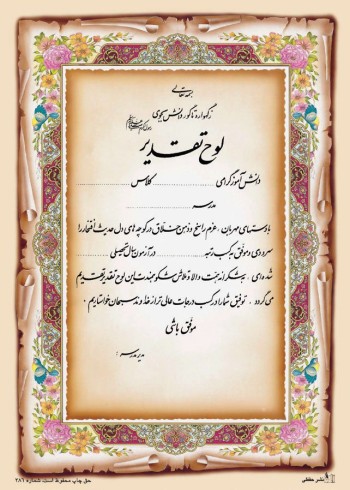 بسمه تعالی
ز گهواره تا گور دانش بجوی
لوح تقدیر
دانش آموز گرامی ............ کلاس ............
مدرسه ............
با دستهای مهربان ، عزم راسخ و ذهن خلاق در کوچه های دل حدیث افتخار را
سرودی و موفق به کسب رتبه ............ در آزمون سال تحصیلی ............
شده ای . به شکرانه همت والا و تلاش شکوهمندت این لوح تقدیر تقدیم
می گردد . توفیق شما را در کسب درجات عالی تر از خداوند سبحان خواستاریم .
موفق باشی
مدیر مدرسه :
حق چاپ محفوظ است شماره ۲۸۶
نشر حافظی